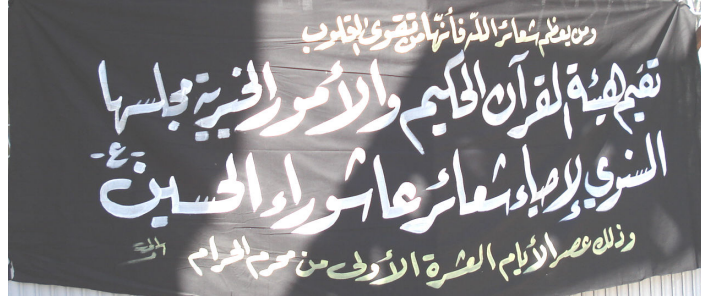 ومن يعظم شعائر الله فأنها من تقوى القلوب
تقيم هيئة القرآن الحكيم والأمور الخيرية مجلسها
السنوي لإحياء شعائر عاشوراء الحسين -ع-
وذلك عصر الأيام العشرة الأولى من محرم الحرام